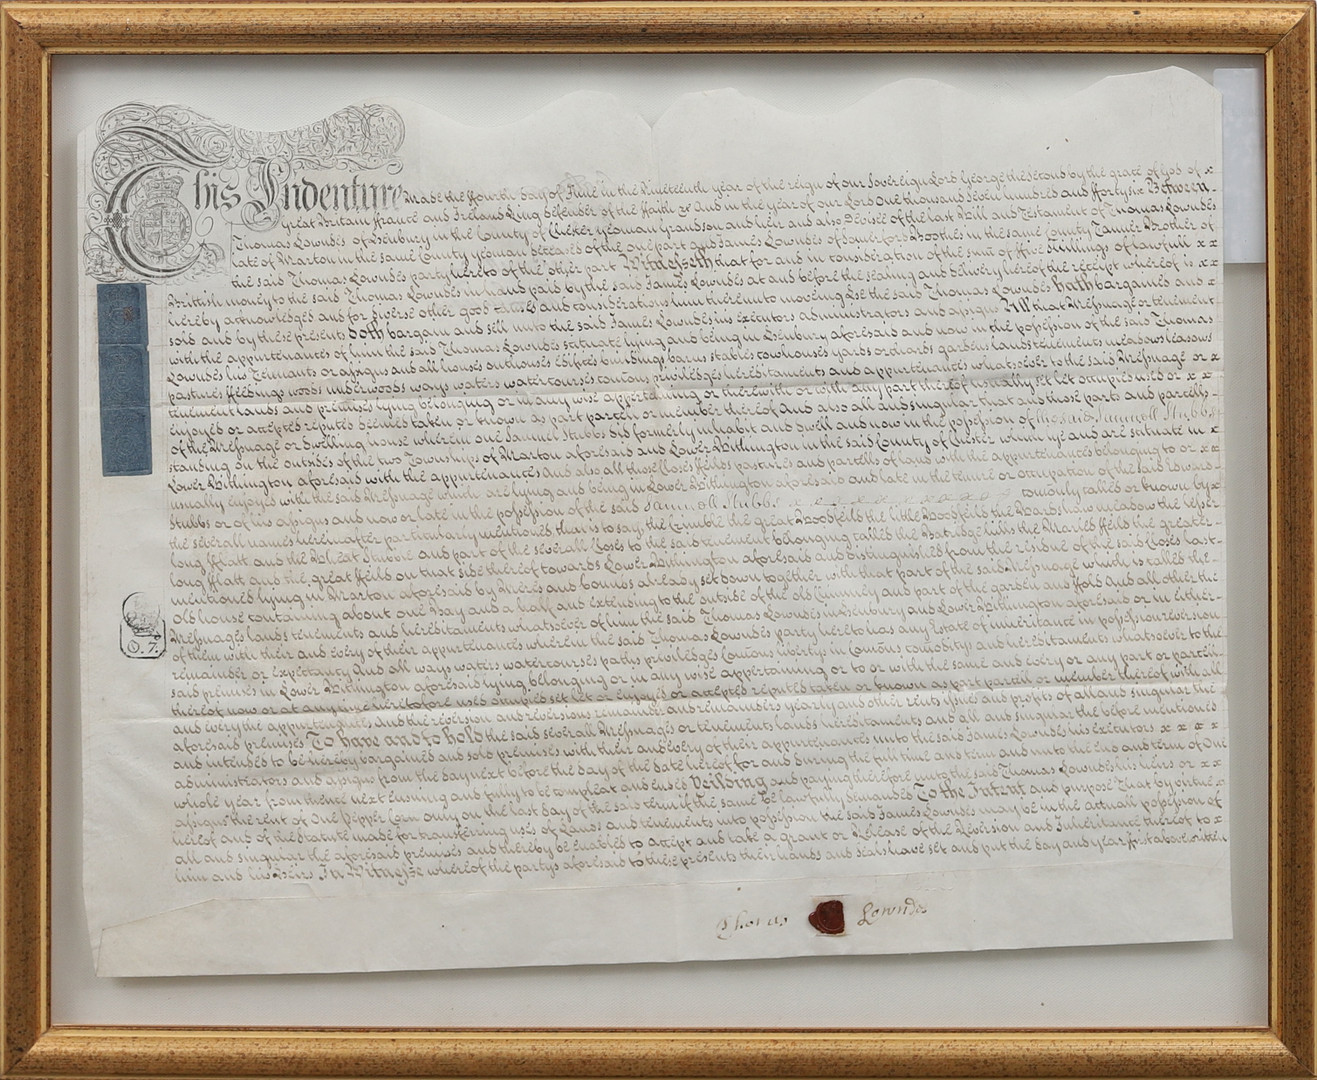 This Indenture Made the ffourth day of June in the Nineteenth year of the reign of our Sovereign Lord George the Second by the grace of God of x
Great Britain ffrance and Ireland King defender of the ffaith &c And in the year of our Lord One thousand Seven hundred and ffortysix Between
Thomas Lowndes of Lsenbury in the County of Chester yeoman Grandson and heir and also Devisee of the last Will and Testament of Thomas Lowndes
late of Marton in the same County yeoman deceased of the one part and James Lowndes of Somerford Boothes in the same County Tanner Brother of
the said Thomas Lowndes party hereto of the other part Witnesseth that for and in consideration of the sum of ffive shillings of lawfull x x
Brittish money to the said Thomas Lowndes in hand paid by the said James Lowndes at and before the sealing and delivery hereof the receipt whereof is x x
hereby acknowledged and for diverse other good causes and considerations him thereunto moveing He the said Thomas Lowndes hath bargained and x
sold and by these present doth bargain and sell unto the said James Lowndes his executors administrators and assigns All that Messuage or tenement
with the appurtenances of him the said Thomas Lowndes situate lying and being in Lsenbury aforesaid and now in the possession of the said Thomas
Lowndes his Tennants or assigns and all houses outhouses edifices buildings barns stables cowhouses yards orchards gardens lands tenements meadows leasows
pastures ffeedings woods underwoods ways waters watercourses comons priviledges hereditaments and appurtenances whatsoever to the said Messuage or x
tenement lands and premises lying belonging or in any wise appertaining or therewith or with any part thereof usually set let occupied used or x x
enjoyed or accepted reputed deemed taken or known as part parcel or member thereof and also all and singular that and those parts and parcells
of the Messuage or dwelling house wherein one Samuel Stubbs did formerly inhabit and dwell and now in the possession of the said Samuell Stubbs
standing on the outsides of the two Townships of Marton aforesaid and Lower Withington in the said County of Chester which lye and are situate in x
Lower Withington aforesaid with the appurtenances and also all those closes ffeilds pastures and parcells of land with the appurtenances belonging to or x x
usually enjoyed with the said Messuage which are lying and being in Lower Withington aforesaid and late in the tenure or occupation of the said Edward
Stubbs or of his assigns and now or late in the possession of the said Samuell Stubbs comonly called or known by x
the severall names hereinafter particularly mentioned that is to say the great Woodfeild the little Woodfeild the meadow the lesser
long fflatt and the and part of the severall closes to the said tenement belonging called the hills the Marled ffeild the greater
long fflatt and the great ffeild on that side thereof towards Lower Withington aforesaid and distinguished from the residue of the said closes last
mentioned lying in Marton aforesaid by Meres and bounds already set down together with that part of the said Messuage which is called the
old house containing about one Bay and a half and extending to the outside of the old Chimney and part of the garden and ffold and all other the
Messuages lands tenements and hereditaments whatsoever of him the said Thomas Lowndes in Lsenbury and Lower Withington aforesaid or in either
of them with their and every of their appurtenances wherein the said Thomas Lowndes party hereto has any Estate of inheritance in possession reversion
remainder or expectancy and all ways waters watercourses paths priviledges comons libertys in comons comoditys and hereditaments whatsoever to the
said premises in Lower Withington aforesaid lying belonging or in any wise appertaining or to or with the same and every or any part or parcell
thereof now or at any time heretofore used occupied set let or enjoyed or accepted reputed taken or known as part parcell or member thereof with all
and every the appurtenances and the reversion and reversions remainder and remainders yearly and other rents issues and profits of all and singular the
aforesaid premises To have and to hold the said severall Messuages or tenements lands hereditaments and all and singular the before mentioned
and intended to be hereby bargained and sold premises with their and every of their appurtenances unto the said James Lowndes his executors x x x x
administrators and assigns from the day next before the day of the date hereof for and during the full time and term and unto the end and term of One
whole year from thence next ensuing and fully to be compleat and ended Yeilding and paying therefore unto the said Thomas Lowndes his heirs or x x
assigns the rent of One Pepper Corn only on the last day of the said term if the same be lawfully demanded To the Intent and purpose That by virtue x
hereof and of the Statute made for transferring uses of Lands and tenements into possession the said James Lowndes may be in the actuall possession of
all and singular the aforesaid premises and thereby be enabled to accept and take a grant or Release of the Reversion and Inheritance thereof to x
him and his heirs In Witnesse whereof the partys aforesaid to these presents their hands and seals have set and put the day and year first above written
O. 7.
Thomas Lowndes